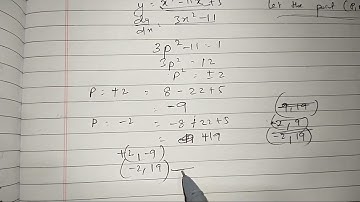 y = x³ - 11x + 5
dy/dx = 3x² - 11
let the point (P,
3p² - 11 = 1
3p² = 12
p² = ±2
P = +2 = 8 - 22 + 5
= -9
P = -2 = -8 + 22 + 5
= +19
+(2, -9)
(-2, 19)
(9, 19)
-2, 9)
(-2, 19)